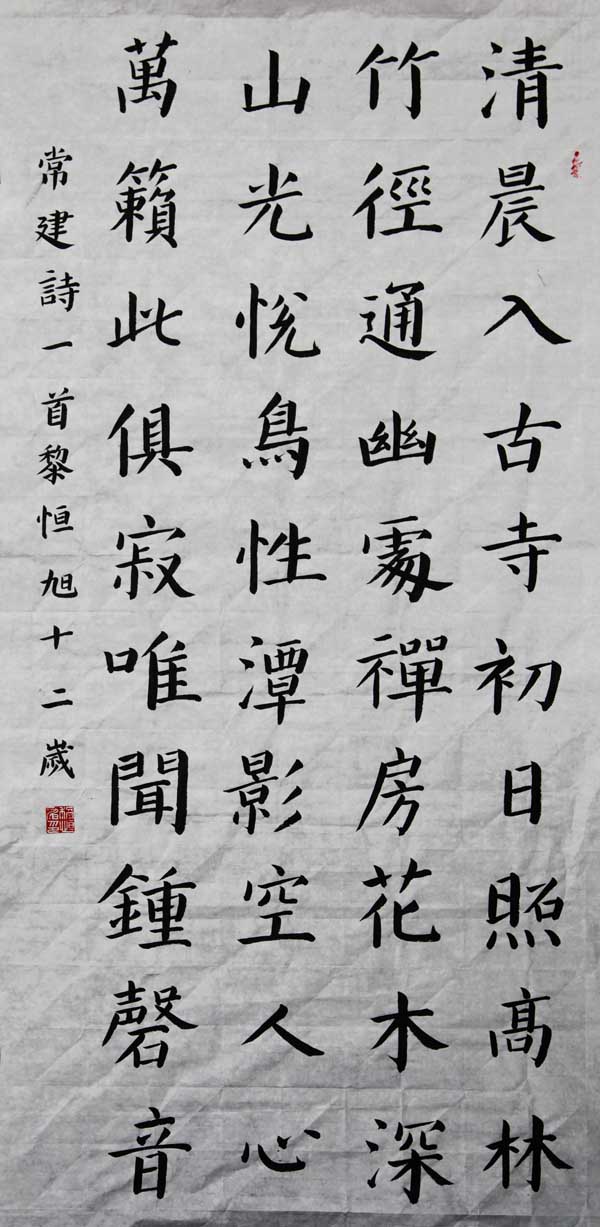 清晨入古寺初日照髙林
竹徑通幽處禪房花木深
山光悅鳥性潭影空人心
萬籟此俱寂唯聞鍾磬音
常建詩一首黎恒旭十二歲